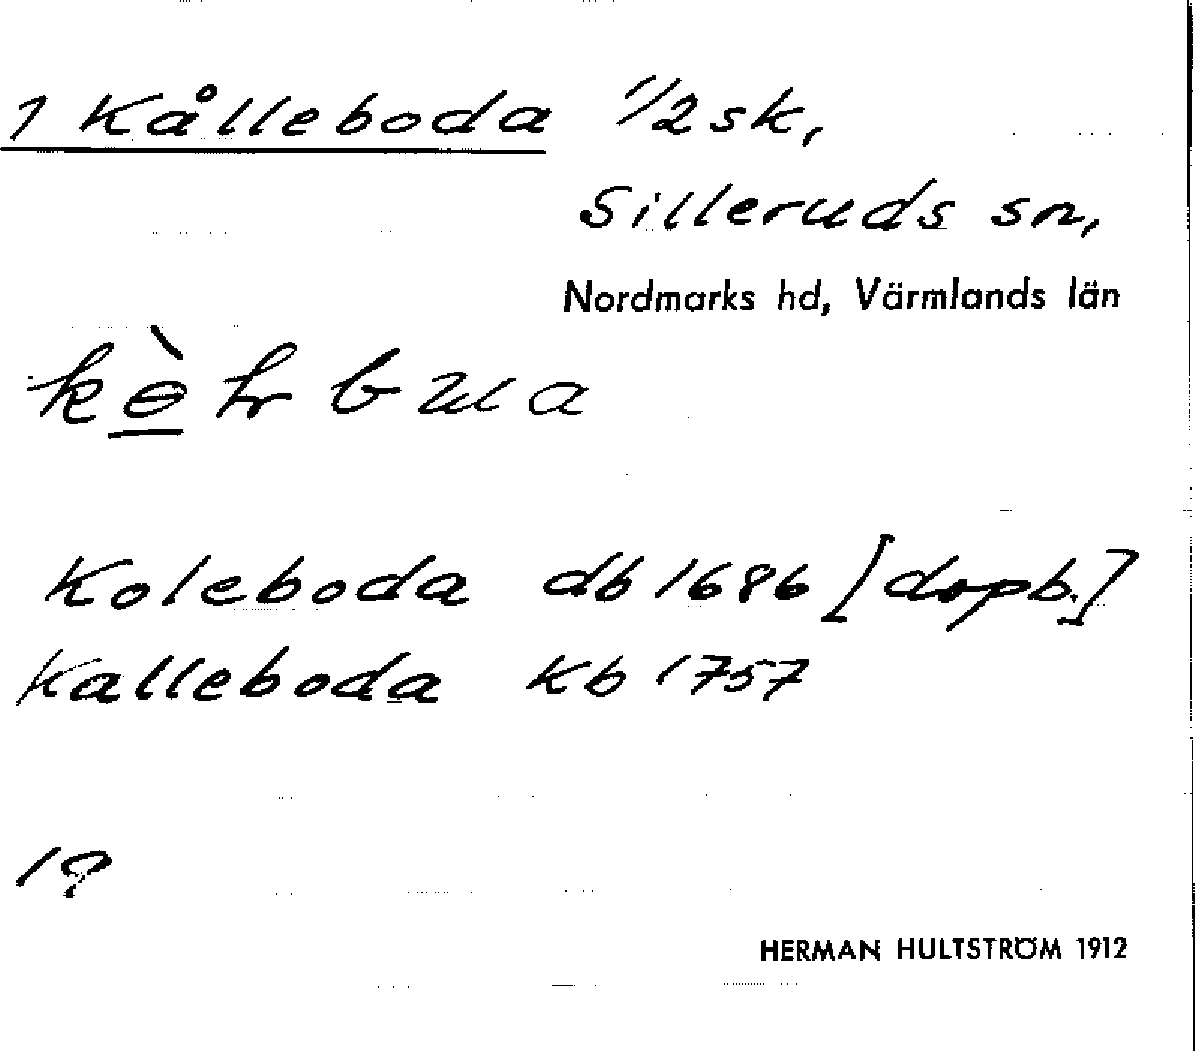 1 Kålleboda 1/2 sk,
Silleruds sn,
Nordmarks hd, Värmlands län
Koleboda db 1686 [dopb.]
Kalleboda Kb 1757
HERMAN HULTSTRÖM 1912